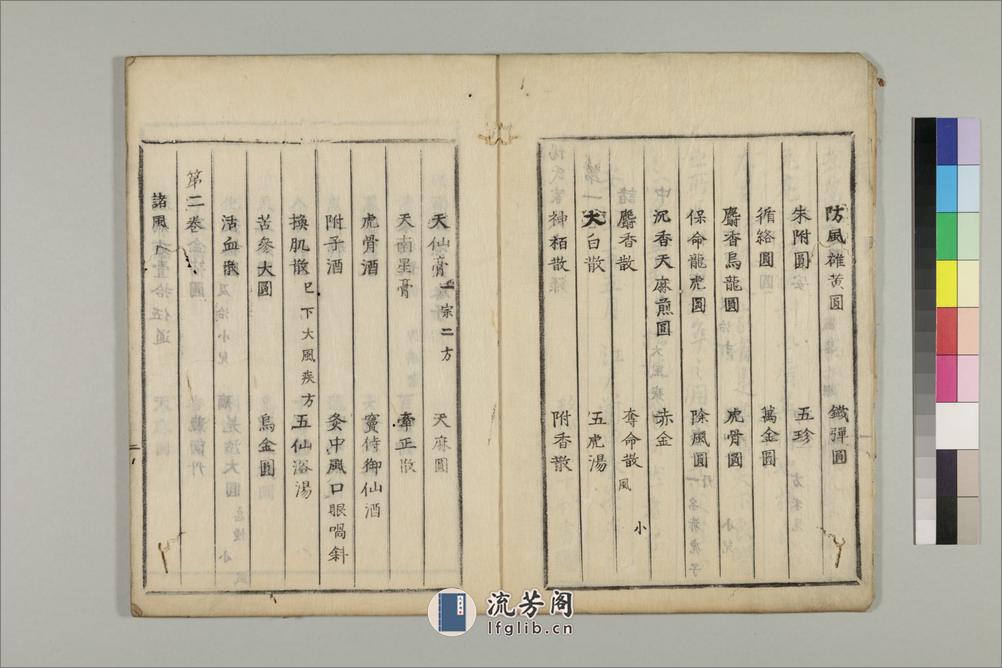 防風雄黄圓 鐵彈圓
朱附圓 五珍
循絡圓 萬金圓
麝香烏龍圓 虎骨圓
保命龍虎圓 除風圓
沉香天麻煎圓 赤金
麝香散 奪命散 風 小
太白散 五虎湯
神栢散 附香散
天仙膏 一宗二方 天麻圓
天南星膏 牽正散
虎骨酒 竇侍御仙酒
附子酒 灸中風口眼喎斜
換肌散 已下大風疾方 五仙浴湯
苦參大圓 烏金圓
活血散
第二卷
諸風下
流芳阁
lfglib.cn